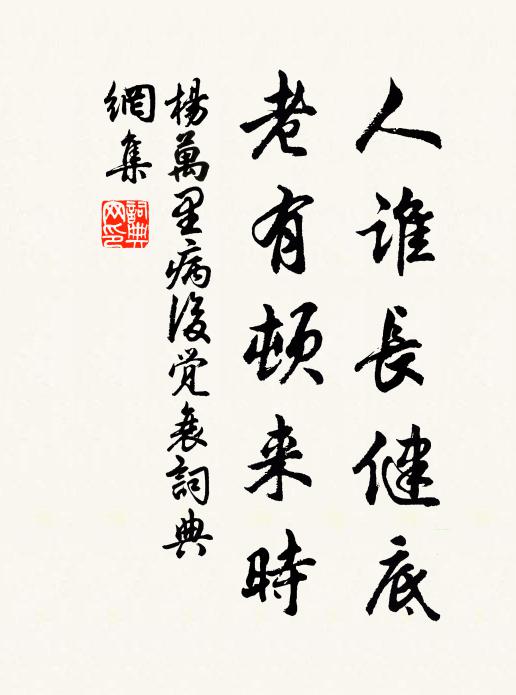 人谁長健底
老有頓来時
楊萬里病後覚衰詞典
網集
詞典
网印